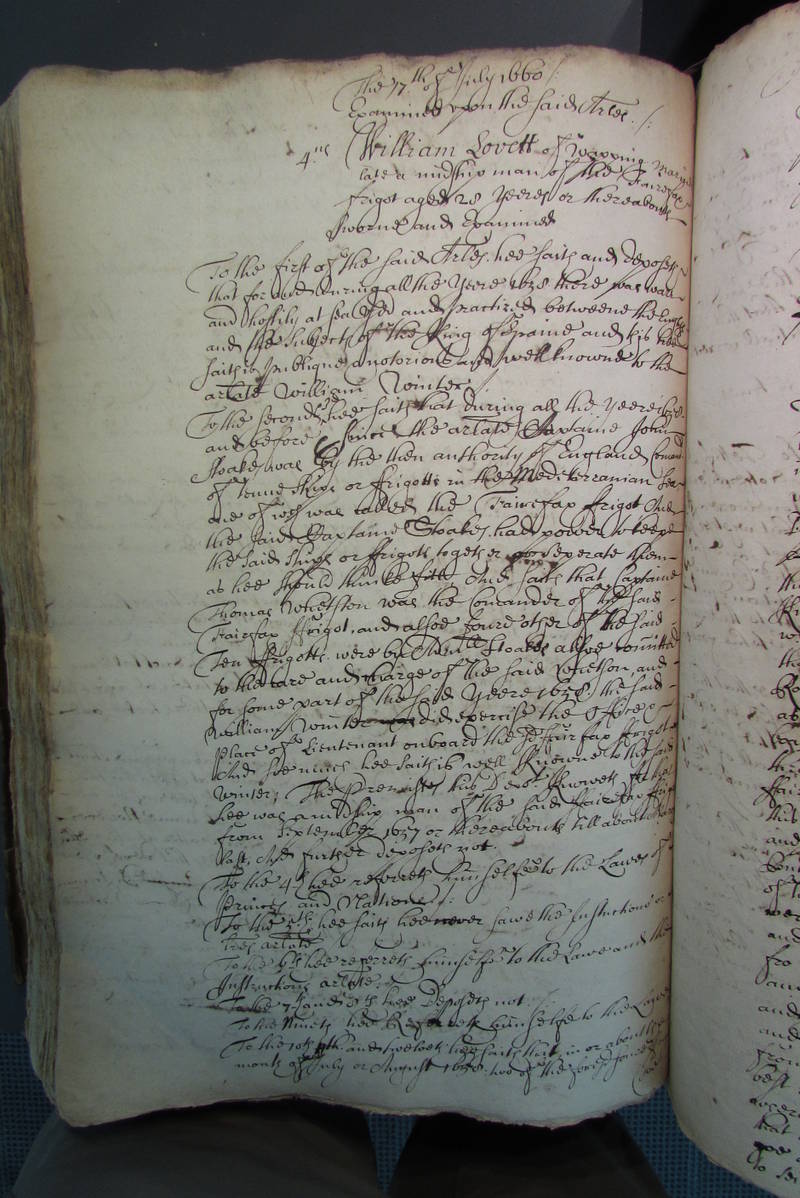 The 17th of July 1660 /:
Examined upon the said Arles. /:
4us William Lovett of Wapping
late a midshipman of the Fairefax
frigot aged 28 yeeres or thereabouts
sworne and examined
To the first of the said Arles hee saith and deposeth
that for and during all the yeere 1658 there was warr
and hostility at sea had and practized betweene the
and the subjects of the King of Spaine and this hee
saith is publique and notorious and well knowne to the
arlate William Winter /.
To the second hee saith that during all the yeere
and before & since the arlate Captaine John
Stoakes was by the then authority of England
of tenne ships or frigotts in the Mediterranian Sea
one of wch was called the Fairefax ffrigot And
the said Captaine Stoakes had power to keepe
the said ships or ffrigots together or seperate them
as hee should thinke fitt And saith that Captaine
Thomas Whetston was the Comander of the said
Fairefax ffrigot, and alsoe foure other of the said
Ten ffrigotts were by the said Stoakes alsoe comitted
to the care and charge of the said Whetson, and
for some part of the said yeere 1658 the said
William Winter did exercise the Office &
Place of Lieutenant onboard the sd Fairfax ffrigot
And soe much hee saith is well knowne to the said
Winter; The premisses this Depot knoweth for that
hee was a midship man of the said Fairefax
from September 1657 or thereabouts till about
last, And further deposeth not.
To the 4th hee referreth himselfe to the Lawes of
Princes and Nations /:
To the 5th hee saith hee never sawe the Instructions or
lres arlate
To the 6th hee referreth himselfe to the Lawe and the
Instructions arlate.
To the 7th and 8th hee deposeth not. /:
To the Nineth hee Referreth himselfe to the
To the 10th 11th and twelveth hee saith that in or about the
moneth of July or August 1658 two of the